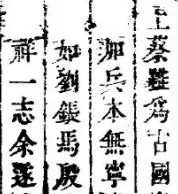 上蔡雖爲古國
加兵本無宣
如劉鋹馬殷
祥一志余遂